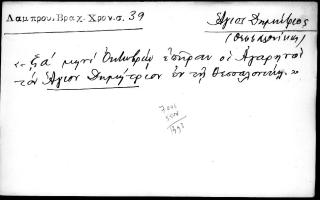 Λαμπρου. Βραχ. Χρον. σ. 39
Ἅγιος Δημήτριος
(Θεσσαλονίκης)
« ξα' μηνὶ Ὀκτωβρίῳ ἐπῆραν οἱ Ἀγαρηνοὶ
τὸν Ἅγιον Δημήτριον ἐν τῇ Θεσσαλονίκῃ. »